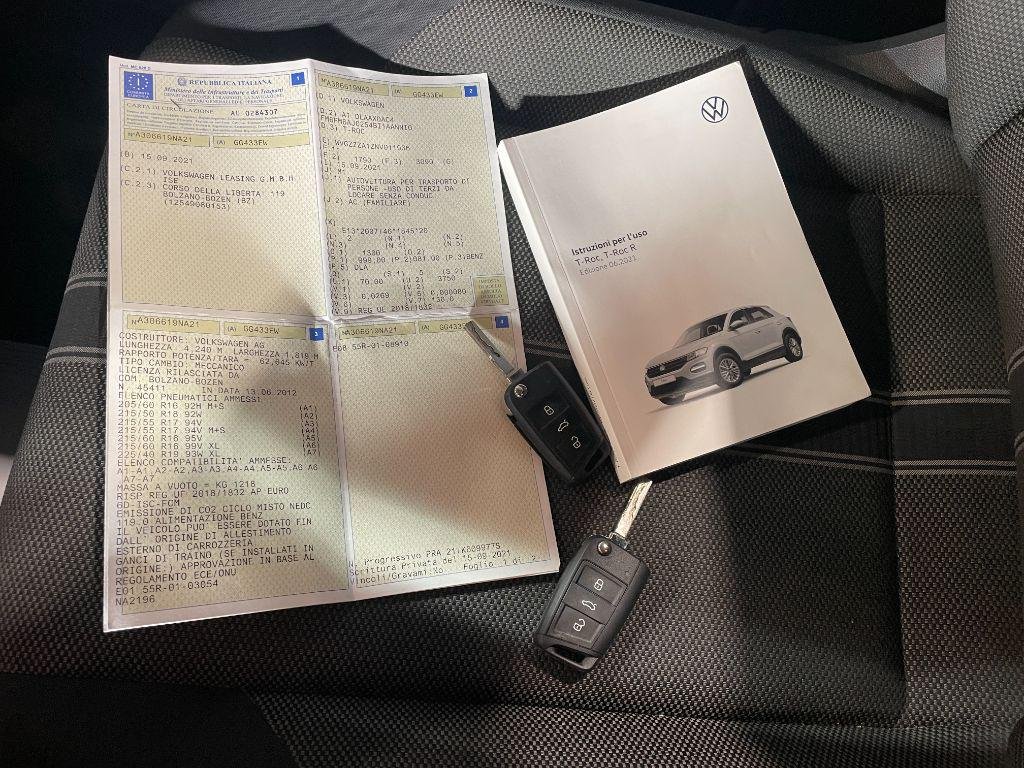 Mod. MC 820 D
REPUBBLICA ITALIANA
1
Ministero delle Infrastrutture e dei Trasporti
DIPARTIMENTO PER I TRASPORTI, LA NAVIGAZIONE
GLI AFFARI GENERALI ED IL PERSONALE
COMUNITÀ EUROPEA
CARTA DI CIRCOLAZIONE AU 0284307
N°A306619NA21 (A) GG433EW
(B) 15.09.2021
(C.2.1) VOLKSWAGEN LEASING G.M.B.H
ISE
(C.2.3) CORSO DELLA LIBERTA' 119
BOLZANO-BOZEN (BZ)
(12549080153)
N°A306619NA21 (A) GG433EW 2
(D.1) VOLKSWAGEN
(D.2) A1 DLAAXDAC4
(D.3) T-ROC
(F.2) 1793 (F.3) 3093 (G)
(I) 15.09.2021
(J) M1
(J.1) AUTOVETTURA PER TRASPORTO DI
PERSONE -USO DI TERZI DA
LOCARE SENZA CONDUC.
(J.2) AC (FAMILIARE)
(K)
(L) 2 (N.1) (N.2)
(N.3) (N.4) (N.5)
(O.1) 1300 (O.2)
(P.1) 999,00 (P.2)081,00 (P.3)BENZ
(P.5) DLA
(Q) (S.1) 5 (S.2)
(U.1) 70,00 (U.2) 3750
(V.3) 0,0269 (V.5) 0,000080
(V.9) REG UE 2018/1832
IMPOSTA
DI BOLLO
ASSOLTA
IN MODO
VIRTUALE
N°A306619NA21 (A) GG433EW 3
COSTRUTTORE: VOLKSWAGEN AG
LUNGHEZZA 4,240 M LARGHEZZA 1,819 M
RAPPORTO POTENZA/TARA = 62,045 KW/T
TIPO CAMBIO: MECCANICO
LICENZA RILASCIATA DA
COM. BOLZANO-BOZEN
N. 45411 IN DATA 13.06.2012
ELENCO PNEUMATICI AMMESSI
205/60 R16 92H M+S (A1)
215/50 R18 92W (A2)
215/55 R17 94V (A3)
215/55 R17 94V M+S (A4)
215/60 R16 95V (A5)
215/60 R16 99V XL (A6)
225/40 R19 93W XL (A7)
ELENCO COMPATIBILITA' AMMESSE:
A1-A1,A2-A2,A3-A3,A4-A4,A5-A5,A6-A6
A7-A7
MASSA A VUOTO = KG 1218
RISP REG UE 2018/1832 AP EURO
6D-ISC-FCM
EMISSIONE DI CO2 CICLO MISTO NEDC
119.0 ALIMENTAZIONE BENZ
IL VEICOLO PUO' ESSERE DOTATO FIN
DALL' ORIGINE DI ALLESTIMENT
ESTERNO DI CARROZZERIA
GANCI DI TRAINO (SE INSTALLATI IN
ORIGINE:) APPROVAZIONE IN BASE AL
REGOLAMENTO ECE/ONU
E01 55R-01-03054
NA2196
N°A306619NA21 (A) GG433EW 4
E08 55R-01-08910
N. Progressivo PRA 21)K809977S
Scrittura Privata del 15-09-2021
Vincoli/Gravami:No Foglio 1 di 2
Istruzioni per l'uso
T-Roc, T-Roc R
Edizione 06.2021